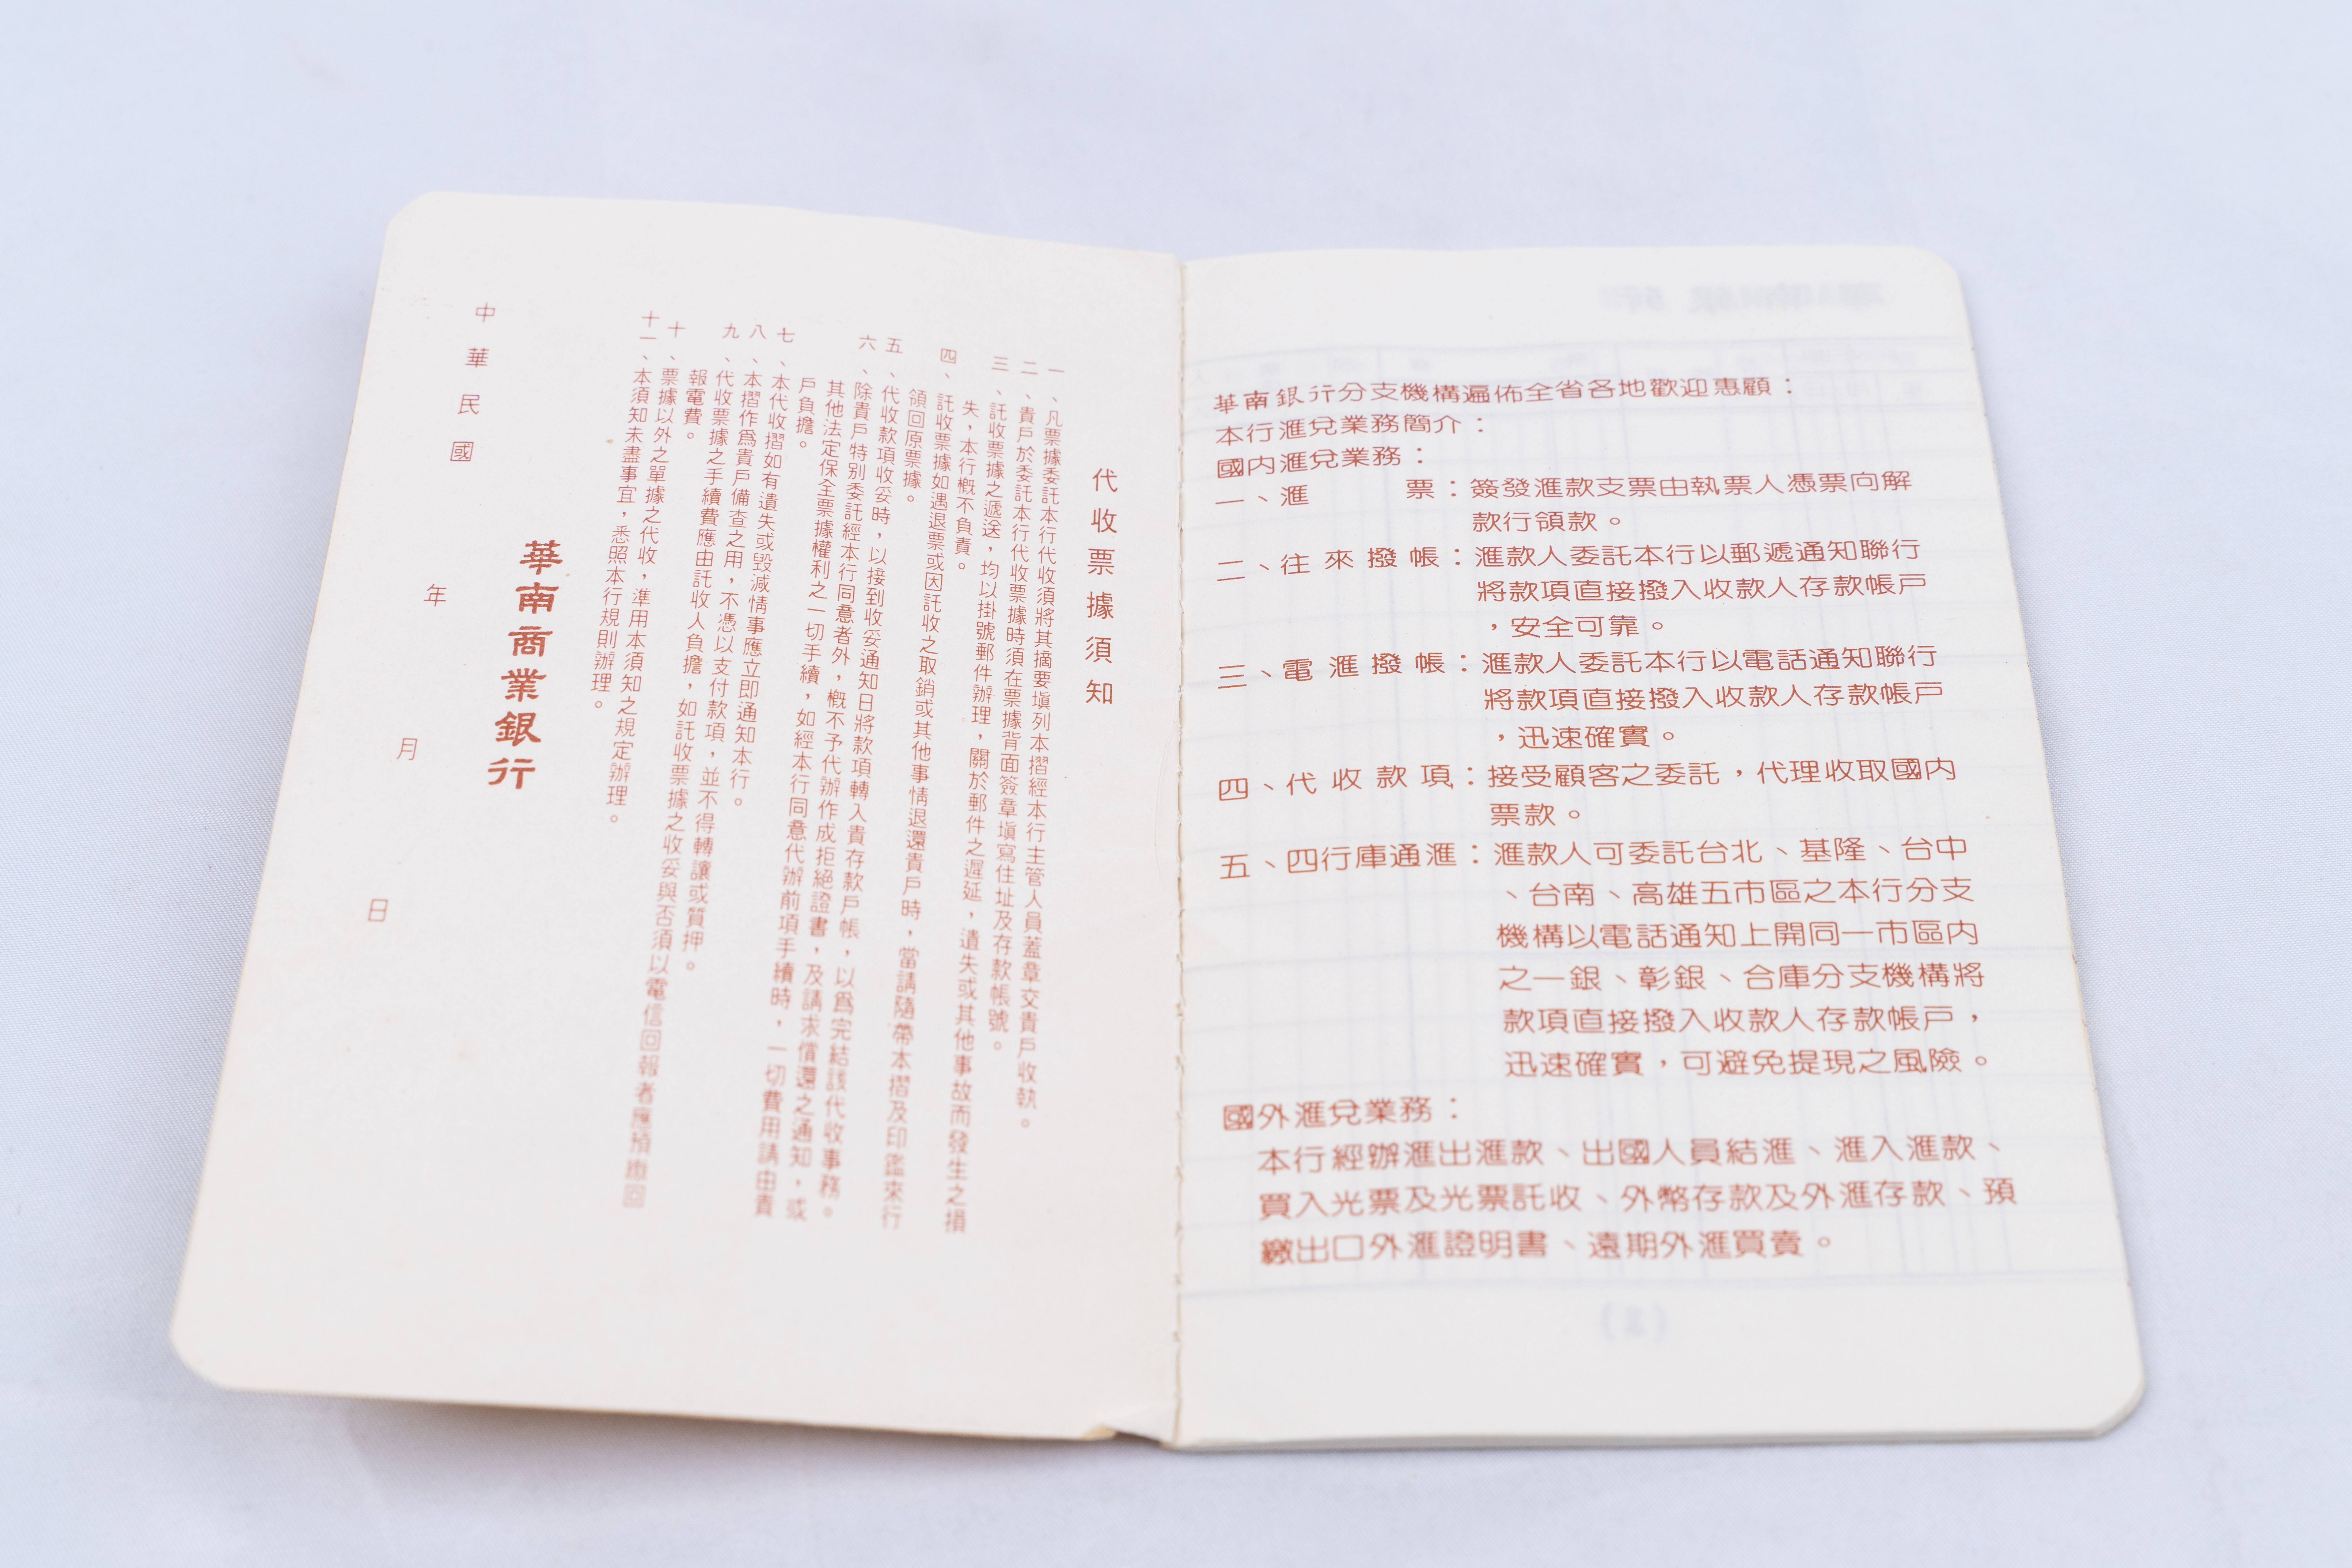 代收票據須知
一、凡票據委託本行代收須將其摘要塡列本摺經本行主管人員蓋章交貴戶收執。
二、貴戶於委託本行代收票據時須在票據背面簽章塡寫住址及存款帳號。
三、託收票據之遞送，均以掛號郵件辦理，關於郵件之遲延，遺失或其他事故而發生之損
失，本行概不負責。
四、託收票據如遇退票或因託收之取銷或其他事情退還貴戶時，當請隨帶本摺及印鑑來行
領回原票據。
五、代收款項收妥時，以接到收妥通知日將款項轉入貴存款戶帳，以爲完結該代收事務。
六、除貴戶特別委託經本行同意者外，概不予代辦作成拒絕證書，及請求償還之通知，或
其他法定保全票據權利之一切手續，如經本行同意代辦前項手續時，一切費用請由貴
戶負擔。
七、本代收摺如有遺失或毀滅情事應立卽通知本行。
八、本摺作爲貴戶備查之用，不憑以支付款項，並不得轉讓或質押。
九、代收票據之手續費應由託收人負擔，如託收票據之收妥與否須以電信回報者應預繳回
報電費。
十、票據以外之單據之代收，準用本須知之規定辦理。
十一、本須知未盡事宜，悉照本行規則辦理。
華南商業銀行
中華民國 年 月 日
華南銀行分支機構遍佈全省各地歡迎惠顧：
本行滙兌業務簡介：
國內滙兌業務：
一、滙 票：簽發滙款支票由執票人憑票向解
款行領款。
二、往來撥帳：滙款人委託本行以郵遞通知聯行
將款項直接撥入收款人存款帳戶
，安全可靠。
三、電滙撥帳：滙款人委託本行以電話通知聯行
將款項直接撥入收款人存款帳戶
，迅速確實。
四、代收款項：接受顧客之委託，代理收取國內
票款。
五、四行庫通滙：滙款人可委託台北、基隆、台中
、台南、高雄五市區之本行分支
機構以電話通知上開同一市區內
之一銀、彰銀、合庫分支機構將
款項直接撥入收款人存款帳戶，
迅速確實，可避免提現之風險。
國外滙兌業務：
本行經辦滙出滙款、出國人員結滙、滙入滙款、
買入光票及光票託收、外幣存款及外滙存款、預
繳出口外滙證明書、遠期外滙買賣。